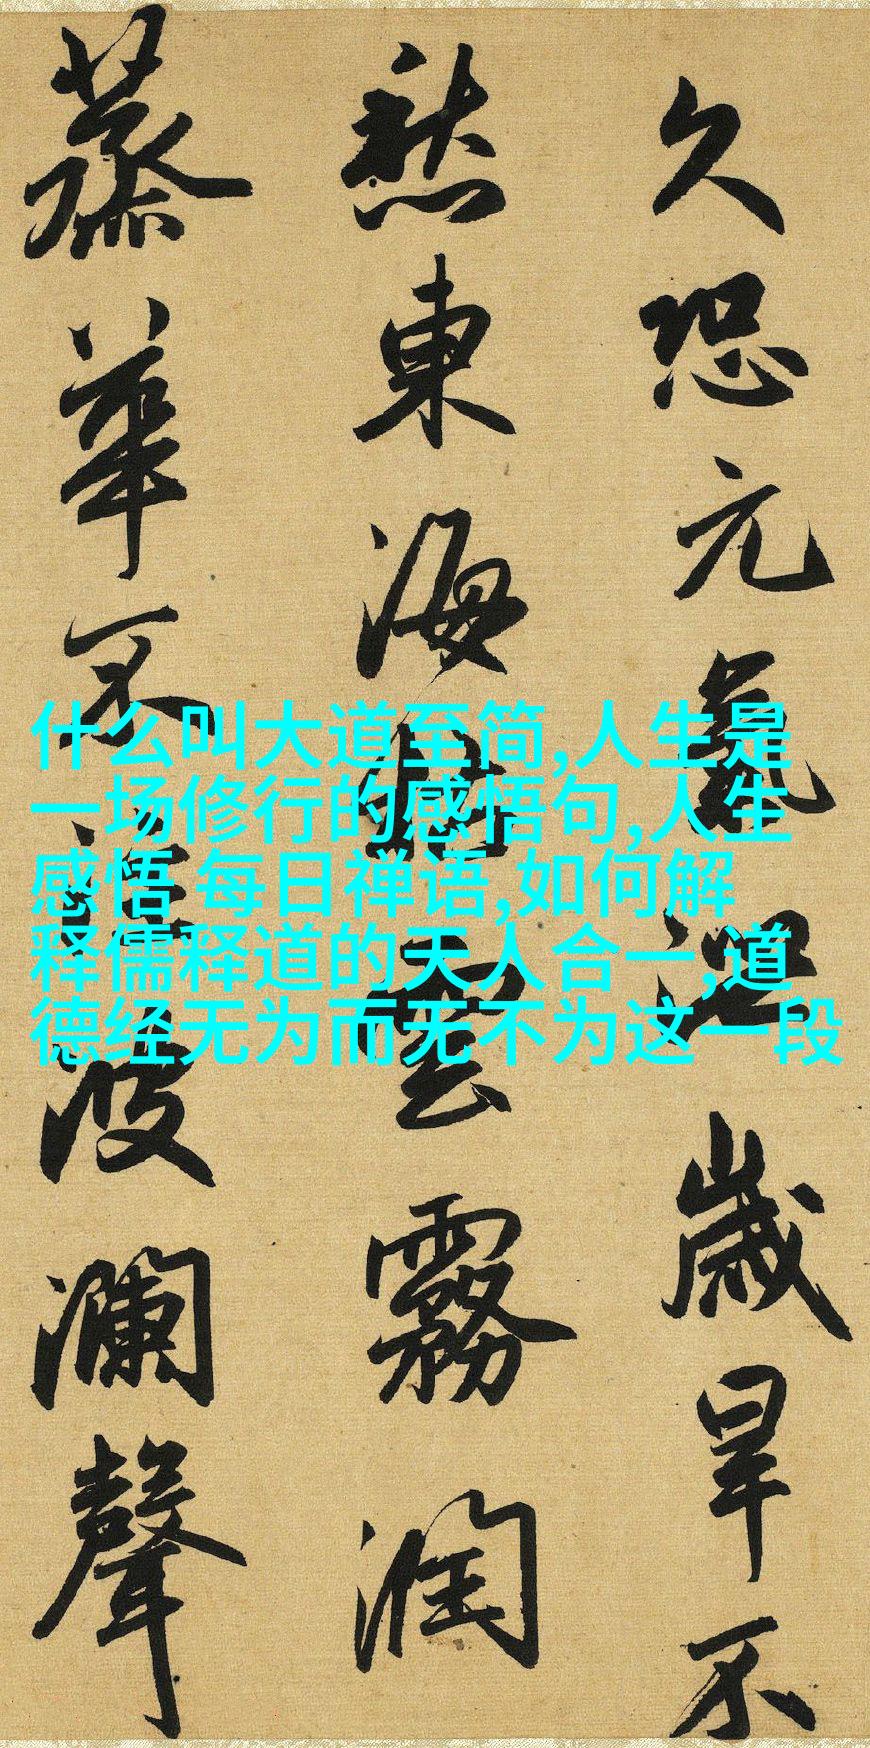 久恐元氣泄歲旱不
愁東海枯雲霧潤
蒸華不注波瀾聲
什么叫大道至简,人生是
一场修行的感悟句,人生
感悟 每日禅语,如何解
释儒释道的天人合一,道
德经无为而无不为这一段